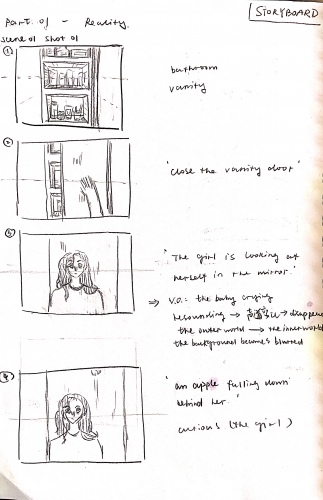 STORYBOARD
Part. 01 - Reality.
scene 01 shot 01
①
bathroom
vanity
②
'close the vanity door'
③
'The girl is looking at
herself in the mirror.'
⇒ V.O.: the baby crying
resounding → → disappear
the outer world → the inner world
the background becomes blurred
④
'an apple falling down
behind her.'
curious (the girl)